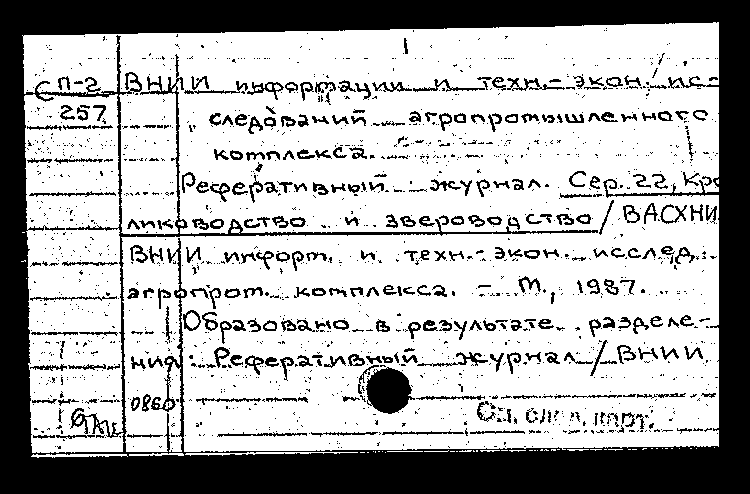 С П-2 ВНИИ информации и техн.- экон. ис-
257 следований агропромышленного
комплекса.
Реферативный журнал. Сер. 22, Кро
лиководство и звероводство / ВАСХНИ
ВНИИ информ. и техн.- экон. исслед.
агропром. комплекса. - М., 1987.
Образовано в результате разделе-
ния: Реферативный журнал / ВНИИ
0860
См. след. карт.